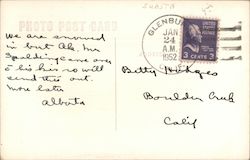 PHOTO POST CARD
GLENBU
JAN
24
A.M.
1952
3 CENTS 3
We are snowed
in but ok. Mr
Spaulding came over
to his so will
send this out.
More later
Alberta
Betty Hedges
Boulder Creek
Calif